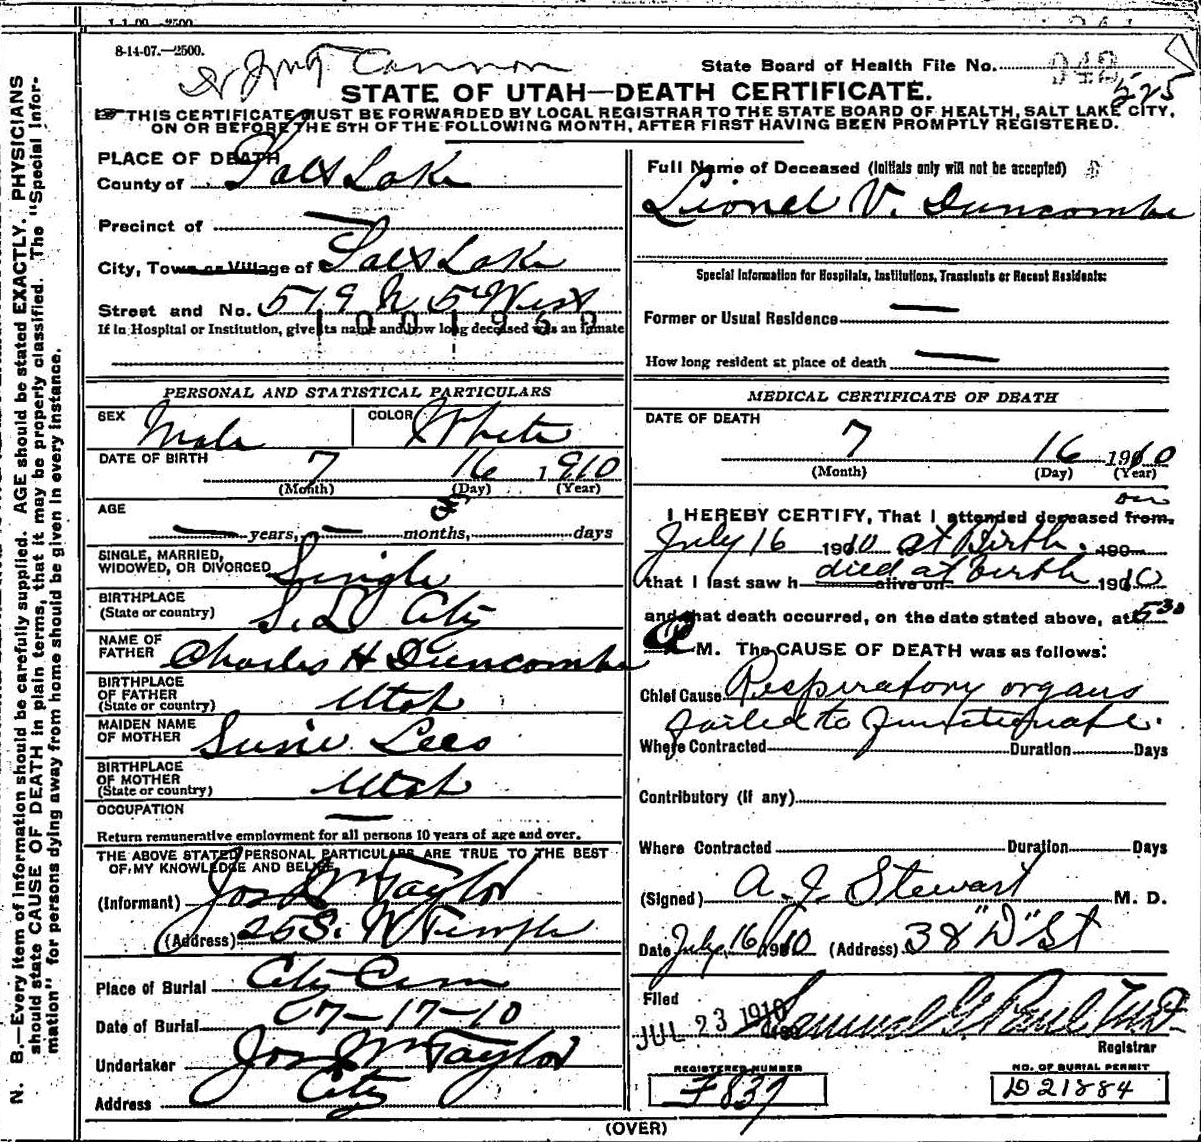 1-1-09.—2500.
8-14-07.—2500.
Cannon
State Board of Health File No.
525
STATE OF UTAH—DEATH CERTIFICATE.
☞ THIS CERTIFICATE MUST BE FORWARDED BY LOCAL REGISTRAR TO THE STATE BOARD OF HEALTH, SALT LAKE CITY,
ON OR BEFORE THE 5TH OF THE FOLLOWING MONTH, AFTER FIRST HAVING BEEN PROMPTLY REGISTERED.
PLACE OF DEATH
County of Salt Lake
Precinct of —
City, Town or Village of Salt Lake
Street and No. 519 N 5 West
If in Hospital or Institution, give its name and how long deceased was an inmate
Full Name of Deceased (Initials only will not be accepted)
Lionel V. Duncombe
Special Information for Hospitals, Institutions, Transients or Recent Residents:
Former or Usual Residence —
How long resident at place of death —
PERSONAL AND STATISTICAL PARTICULARS
SEX Male COLOR White
DATE OF BIRTH 7 16 1910
(Month) (Day) (Year)
AGE
— years, — months, days
SINGLE, MARRIED,
WIDOWED, OR DIVORCED Single
BIRTHPLACE
(State or country) S. L. City
NAME OF
FATHER Charles H Duncombe
BIRTHPLACE
OF FATHER
(State or country) Utah
MAIDEN NAME
OF MOTHER Susie Lees
BIRTHPLACE
OF MOTHER
(State or country) Utah
OCCUPATION —
Return remunerative employment for all persons 10 years of age and over.
THE ABOVE STATED PERSONAL PARTICULARS ARE TRUE TO THE BEST
OF MY KNOWLEDGE AND BELIEF
(Informant) Jos Wm Taylor
(Address) 25 S. W Temple
Place of Burial City Cem
Date of Burial 07-17-10
Undertaker Jos Wm Taylor
Address City
MEDICAL CERTIFICATE OF DEATH
DATE OF DEATH
7 16 1910
(Month) (Day) (Year)
on
I HEREBY CERTIFY, That I attended deceased from
July 16 1910 at Birth. 190
that I last saw h died at birth alive on 1910
and that death occurred, on the date stated above, at 5 30
M. The CAUSE OF DEATH was as follows:
Chief Cause Respiratory organs
failed to functionate.
Where Contracted Duration Days
Contributory (If any)
Where Contracted Duration Days
(Signed) A. J. Stewart M. D.
Date July 16 1910 (Address) 38 "D" St
Filed
JUL 23 1910 Samuel G. Paul MD
Registrar
REGISTERED NUMBER
F837
NO. OF BURIAL PERMIT
D21884
(OVER)
N. B.—Every item of information should be carefully supplied. AGE should be stated EXACTLY. PHYSICIANS
should state CAUSE OF DEATH in plain terms, that it may be properly classified. The "Special Infor-
mation" for persons dying away from home should be given in every instance.